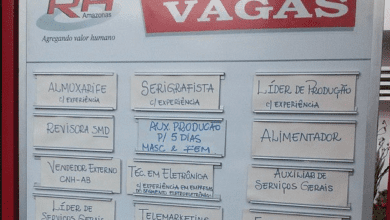 RH
Amazonas
Agregando valor humano
VAGAS
ALMOXARIFE
C/ EXPERIÊNCIA
SERIGRAFISTA
C/ EXPERIÊNCIA
LÍDER DE PRODUÇÃO
C/ EXPERIÊNCIA
REVISORA SMD
AUX PRODUÇÃO
P/ 5 DIAS
MASC E FEM
ALIMENTADOR
VENDEDOR EXTERNO
CNH-AB
TEC. EM ELETRÔNICA
C/ EXPERIÊNCIA EM EMPRESA
DE SEGMENTO ELETROELETRÔNICO
AUXILIAR DE
SERVIÇOS GERAIS
LÍDER DE
SERVIÇOS GERAIS
TELEMARKETING